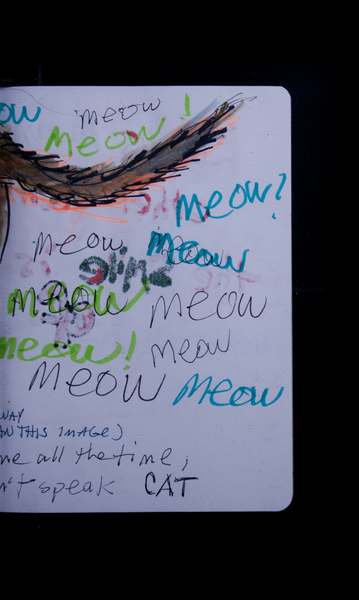 ow meow
meow!
meow?
meow meow
meow
meow meow
meow! meow
meow meow
WAY
AN THIS IMAGE)
me all the time,
n't speak CAT